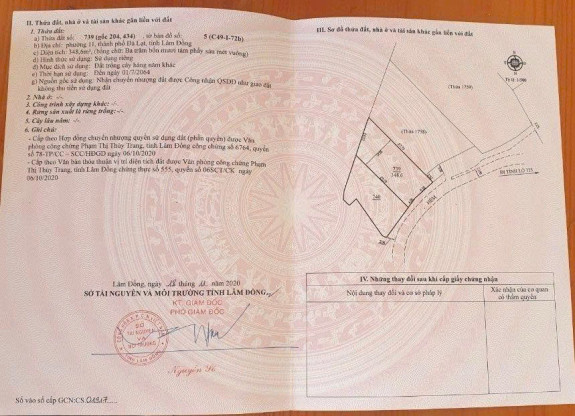 II. Thửa đất, nhà ở và tài sản khác gắn liền với đất
1. Thửa đất:
a) Thửa đất số: 739 (gốc 204, 434) , tờ bản đồ số: 5 (C49-I-72b)
b) Địa chỉ: phường 11, thành phố Đà Lạt, tỉnh Lâm Đồng
c) Diện tích: 348,6m², (bằng chữ: Ba trăm bốn mươi tám phẩy sáu mét vuông)
d) Hình thức sử dụng: Sử dụng riêng
đ) Mục đích sử dụng: Đất trồng cây hàng năm khác
e) Thời hạn sử dụng: Đến ngày 01/7/2064
g) Nguồn gốc sử dụng: Nhận chuyển nhượng đất được Công nhận QSDĐ như giao đất
không thu tiền sử dụng đất
2. Nhà ở: -/-
3. Công trình xây dựng khác: -/-
4. Rừng sản xuất là rừng trồng: -/-
5. Cây lâu năm: -/-
6. Ghi chú:
- Cấp theo Hợp đồng chuyển nhượng quyền sử dụng đất (phần) được Văn
phòng công chứng Phạm Thị Thùy Trang, tỉnh Lâm Đồng công chứng số 6764, quyển
số 78-TP/CC – SCC/HĐGD ngày 06/10/2020
- Cấp theo Văn bản thỏa thuận vị trí diện tích đất được Văn phòng công chứng Phạm
Thị Thùy Trang, tỉnh Lâm Đồng chứng thực số 555, quyển số 06SCT/CK ngày
06/10/2020
Lâm Đồng, ngày tháng 11 năm 2020
SỞ TÀI NGUYÊN VÀ MÔI TRƯỜNG TỈNH LÂM ĐỒNG
KT. GIÁM ĐỐC
PHÓ GIÁM ĐỐC
SỞ
TÀI NGUYÊN
VÀ
MÔI TRƯỜNG
Số vào sổ cấp GCN:CS
III. Sơ đồ thửa đất, nhà ở và tài sản khác gắn liền với đất
(Thửa 759)
(Thửa 758)
739
348.6
740
HẺM
ĐI TỈNH LỘ 723
IV. Những thay đổi sau khi cấp giấy chứng nhận
Nội dung thay đổi và cơ sở pháp lý
Xác nhận của cơ quan
có thẩm quyền